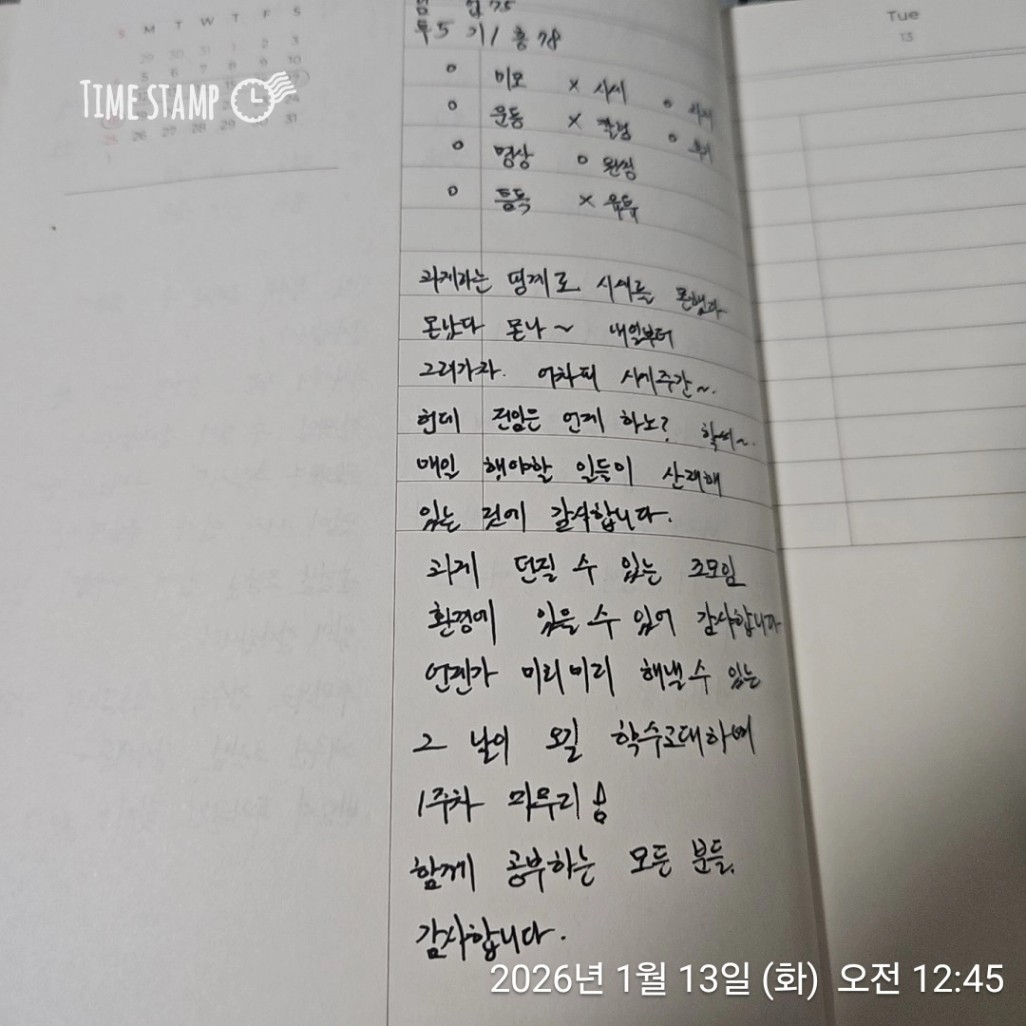 S M T W T F S
29 30 31 1 2 3
5 6 7 8 9 10
26 27 28 29 30 31
1
TIME STAMP
Tue
13
투5 기/ 총 78
o 미모 x 시세 o
o 운동 x 칼럼 o
o 명상 o 원씽
o 통독 x 유튜
과제라는 핑계로 시세를 못했다
몬났다 몬나~ 내일부터
그러가자. 어차피 시기주간~.
헌데 전임은 언제 하노?
매일 해야할 일들이 산재해
있는 것에 감사합니다.
과제 던질 수 있는 조모임
환경에 있을 수 있어 감사합니다
언젠가 미리미리 해낼 수 있는
그 날이 오길 학수고대하며
1주차 마무리
함께 공부하는 모든 분들.
감사합니다.
2026년 1월 13일 (화) 오전 12:45